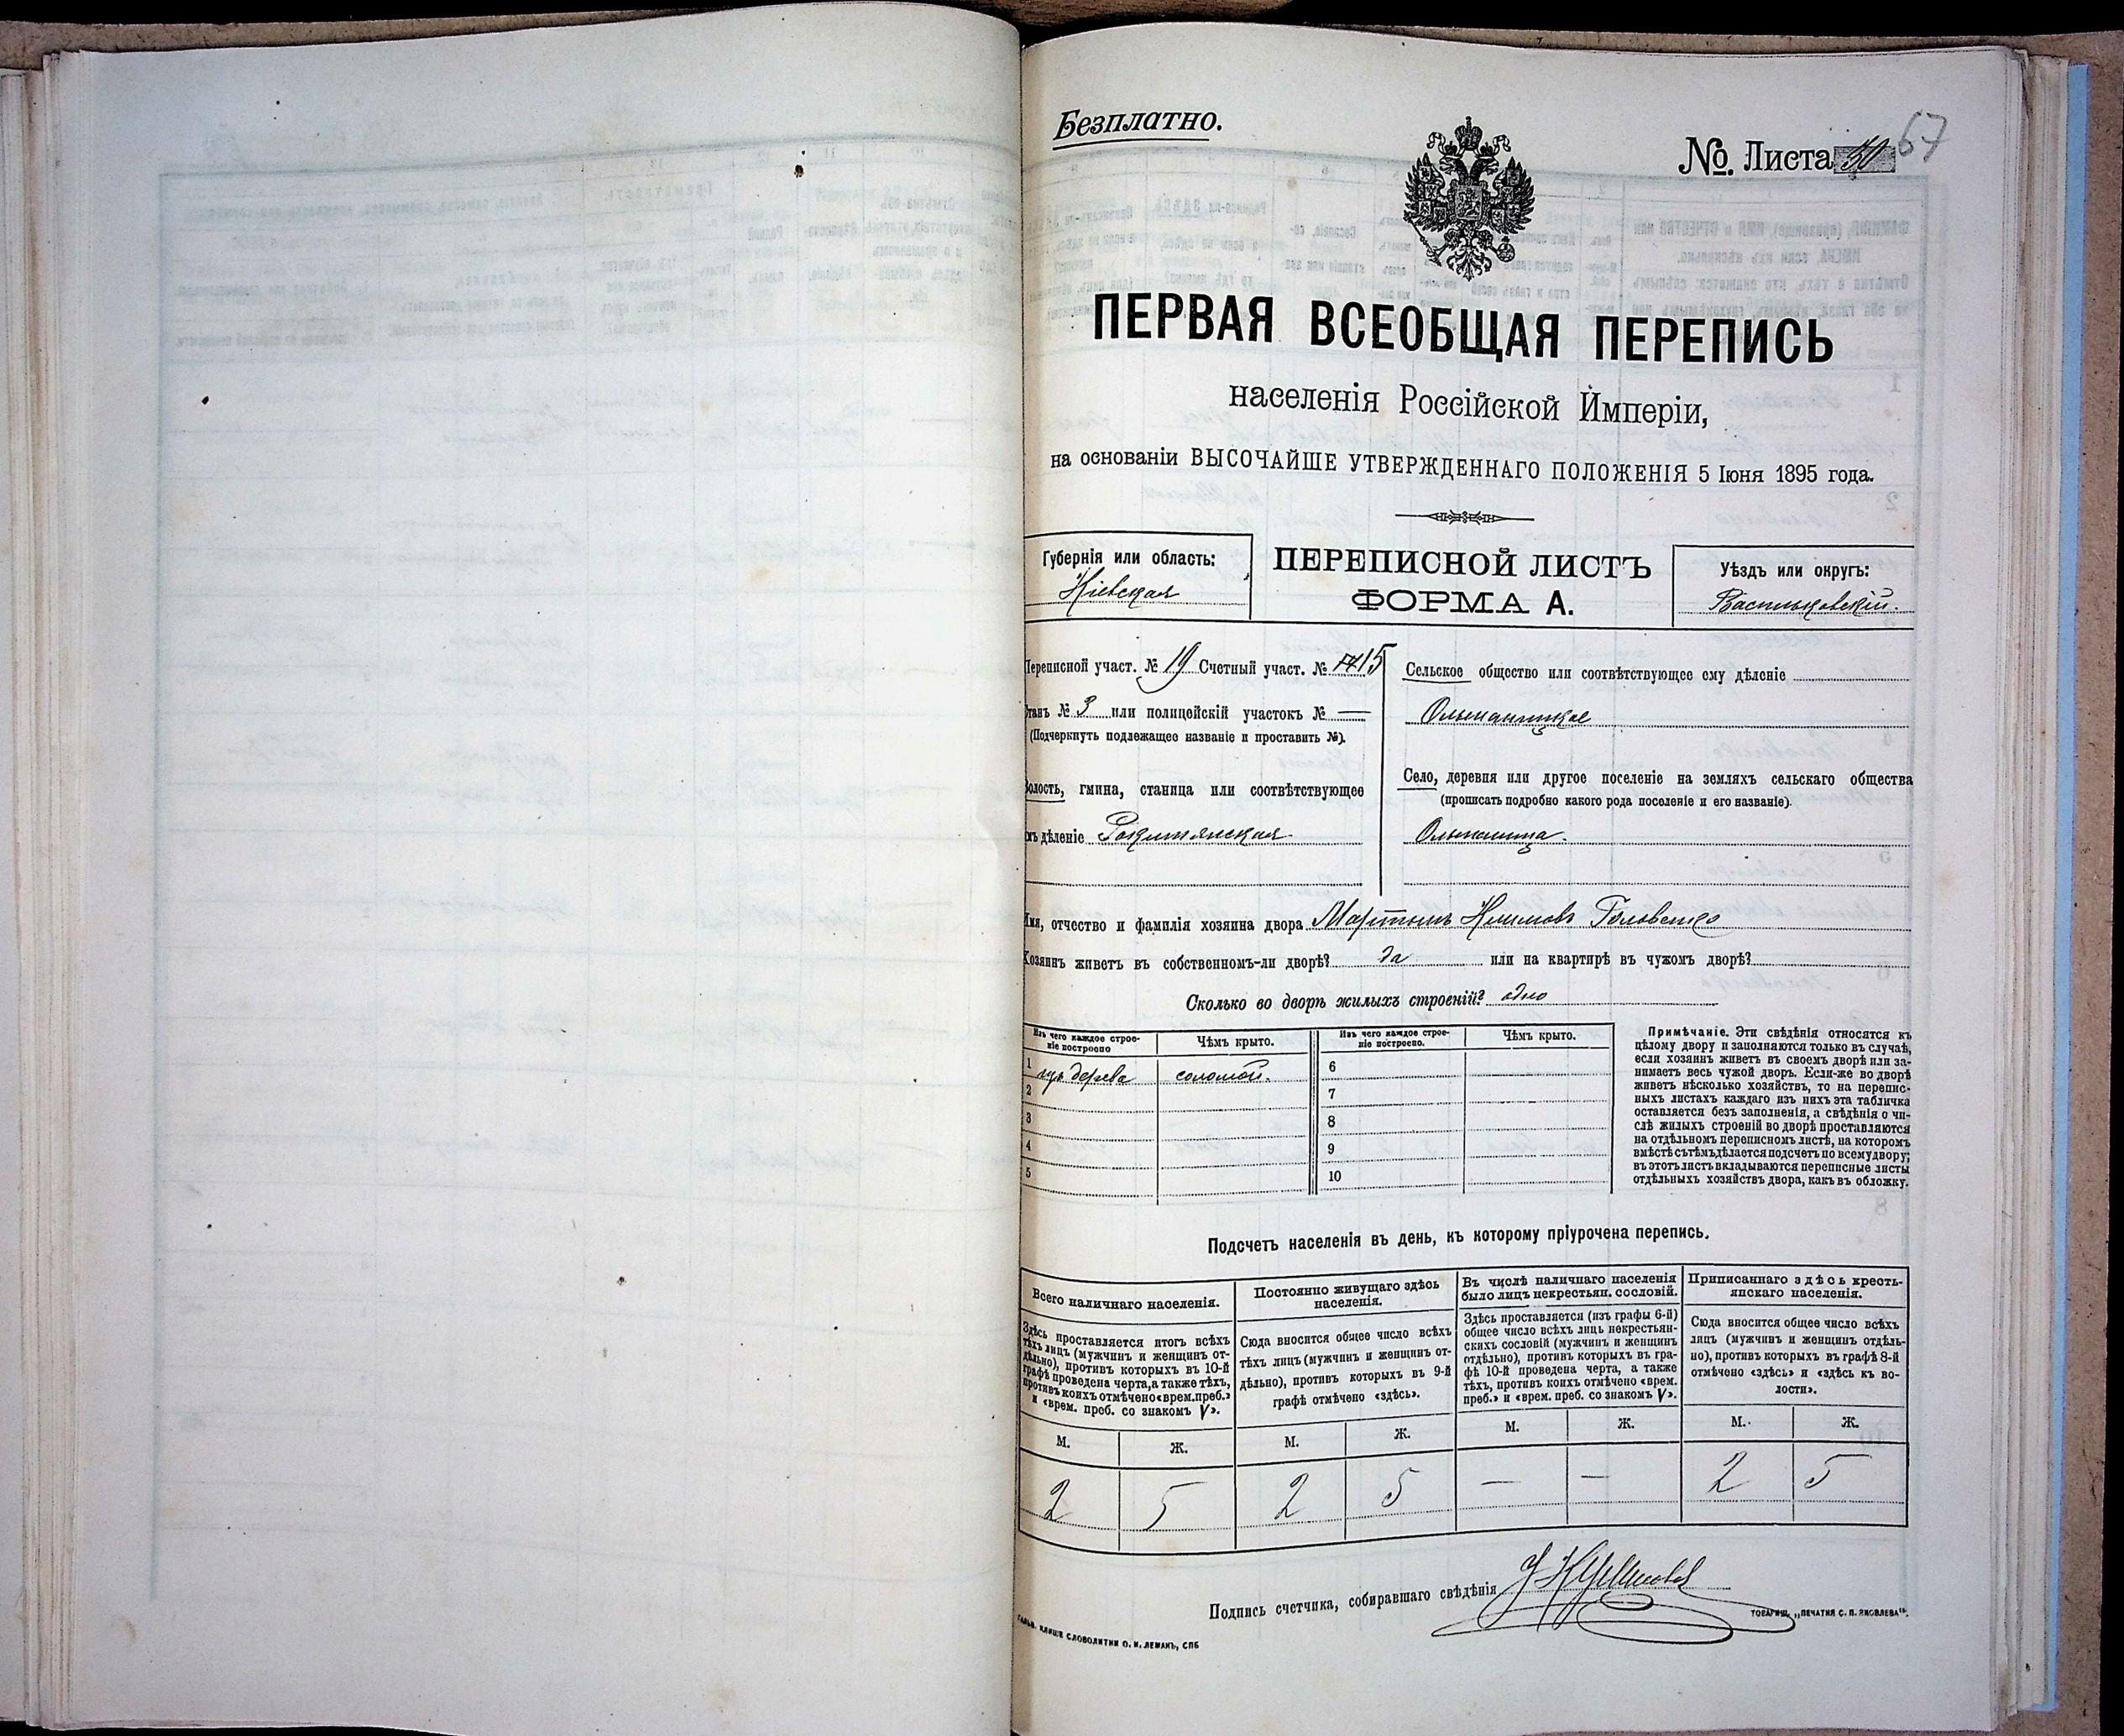 Безплатно.
№. Листа 50 67
ПЕРВАЯ ВСЕОБЩАЯ ПЕРЕПИСЬ
населенія Россійской Имперіи,
на основаніи ВЫСОЧАЙШЕ УТВЕРЖДЕННАГО ПОЛОЖЕНІЯ 5 Іюня 1895 года.
Губернія или область:
Кіевская
ПЕРЕПИСНОЙ ЛИСТЪ
ФОРМА А.
Уѣздъ или округъ:
Васильковскій.
Переписной участ. № 19 Счетный участ. № 15
Станъ № 3 или полицейскій участокъ № —
(Подчеркнуть подлежащее названіе и проставить №).
Волость, гмина, станица или соотвѣтствующее
имъ дѣленіе Рокитянская
Сельское общество или соотвѣтствующее ему дѣленіе
Ольшаницкое
Село, деревня или другое поселеніе на земляхъ сельскаго общества
(прописать подробно какого рода поселеніе и его названіе).
Ольшаница.
Имя, отчество и фамилія хозяина двора Мартынъ Климовъ Головенко
Хозяинъ живетъ въ собственномъ-ли дворѣ? да или на квартирѣ въ чужомъ дворѣ?
Сколько во дворѣ жилыхъ строеній? одно
Изъ чего каждое строе-
ніе построено
Чѣмъ крыто.
Изъ чего каждое строе-
ніе построено.
Чѣмъ крыто.
1 изъ дерева соломой. 6
2 7
3 8
4 9
5 10
Примѣчаніе. Эти свѣдѣнія относятся къ
цѣлому двору и заполняются только въ случаѣ,
если хозяинъ живетъ въ своемъ дворѣ или за-
нимаетъ весь чужой дворъ. Если-же во дворѣ
живетъ нѣсколько хозяйствъ, то на перепис-
ныхъ листахъ каждаго изъ нихъ эта табличка
оставляется безъ заполненія, а свѣдѣнія о чи-
слѣ жилыхъ строеній во дворѣ проставляются
на отдѣльномъ переписномъ листѣ, на которомъ
вмѣстѣ съ тѣмъ дѣлается подсчетъ по всему двору;
въ этотъ листъ вкладываются переписные листы
отдѣльныхъ хозяйствъ двора, какъ въ обложку.
Подсчетъ населенія въ день, къ которому пріурочена перепись.
Всего наличнаго населенія.
Здѣсь проставляется итогъ всѣхъ
тѣхъ лицъ (мужчинъ и женщинъ от-
дѣльно), противъ которыхъ въ 10-й
графѣ проведена черта, а также тѣхъ,
противъ коихъ отмѣчено «врем. преб.»
и «врем. преб. со знакомъ V».
Постоянно живущаго здѣсь
населенія.
Сюда вносится общее число всѣхъ
тѣхъ лицъ (мужчинъ и женщинъ от-
дѣльно), противъ которыхъ въ 9-й
графѣ отмѣчено «здѣсь».
Въ числѣ наличнаго населенія
было лицъ некрестьян. сословій.
Здѣсь проставляется (изъ графы 6-й)
общее число всѣхъ лицъ некрестьян-
скихъ сословій (мужчинъ и женщинъ
отдѣльно), противъ которыхъ въ гра-
фѣ 10-й проведена черта, а также
тѣхъ, противъ коихъ отмѣчено «врем.
преб.» и «врем. преб. со знакомъ V».
Приписаннаго здѣсь кресть-
янскаго населенія.
Сюда вносится общее число всѣхъ
лицъ (мужчинъ и женщинъ отдѣль-
но), противъ которыхъ въ графѣ 8-й
отмѣчено «здѣсь» и «здѣсь къ во-
лости».
М. Ж. М. Ж. М. Ж. М. Ж.
2 5 2 5 — — 2 5
Подпись счетчика, собиравшаго свѣдѣнія
КЛИШЕ СЛОВОЛИТНИ О. И. ЛЕМАНЪ, СПБ
ТОВАРИЩ. „ПЕЧАТНЯ С. П. ЯКОВЛЕВА“.